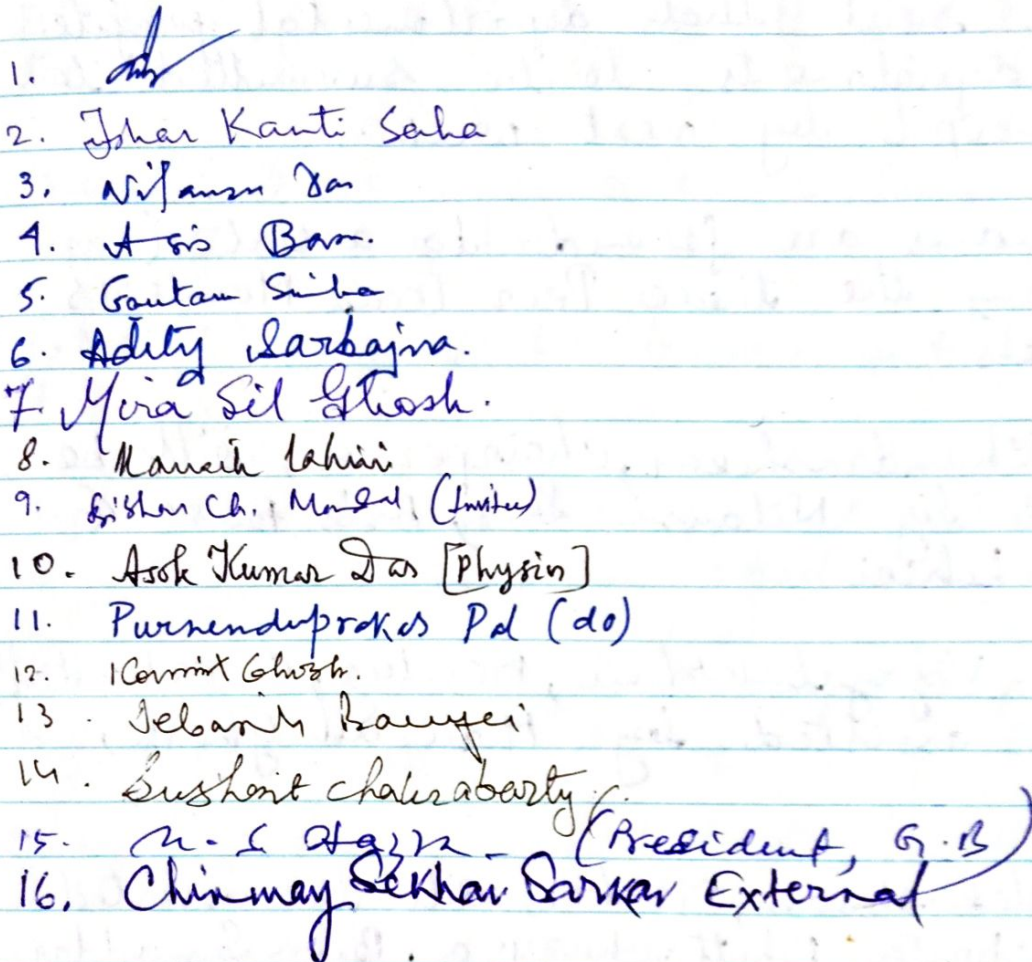 1.
2. Ishar Kanti Saha
3. Das
4. Asis Basu.
5. Gautam Sinha
6. Aditya Sarbajna.
7. Mira Sil Ghosh.
8. Manasih Lahiri
9. Ch. Mondal (Invitee)
10. Asok Kumar Das [Physics]
11. Purnenduprokas Pal (do)
12. Ghosh.
13. Debasish Banerjei
14. Sushant Chakrabarty
15. (President, G.B)
16. Chinmay Sekhar Sarkar External